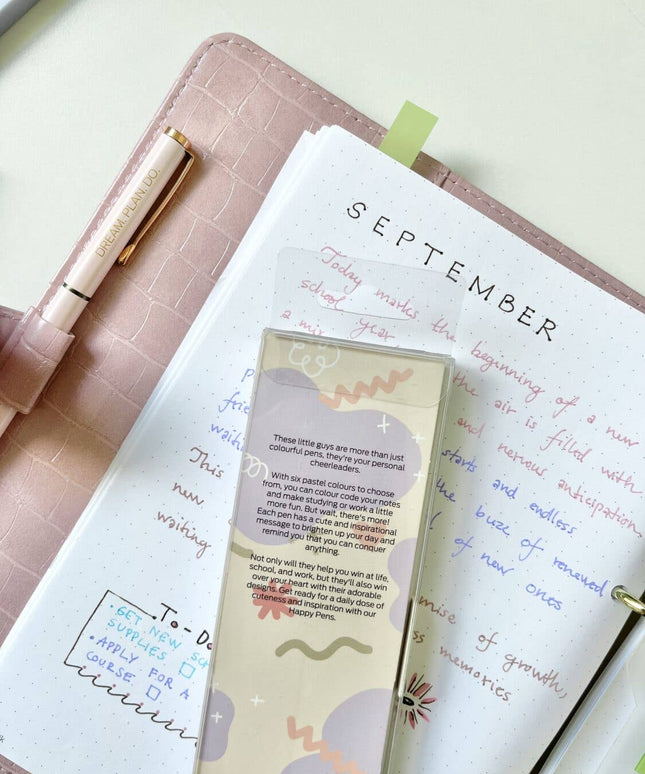 DREAM. PLAN. DO.
SEPTEMBER
Today marks the beginning of a new
school year, the air is filled with
a mix and nervous anticipation.
starts and endless
frie the buzz of renewed
waiti of new ones
This
new mise of growth,
waiting ss memories.
These little guys are more than just
colourful pens, they're your personal
cheerleaders.
With six pastel colours to choose
from, you can colour code your notes
and make studying or work a little
more fun. But wait, there's more!
Each pen has a cute and inspirational
message to brighten up your day and
remind you that you can conquer
anything.
Not only will they help you win at life,
school, and work, but they'll also win
over your heart with their adorable
designs. Get ready for a daily dose of
cuteness and inspiration with our
Happy Pens.
To-Do
• GET NEW SCH
SUPPLIES
• APPLY FOR A
COURSE